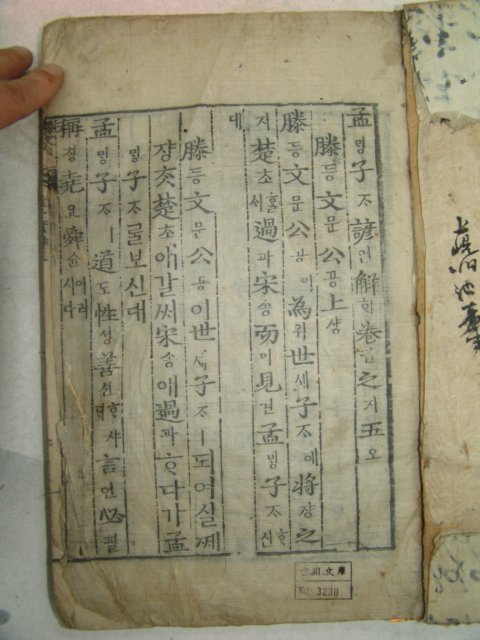 孟밍子ᄌᆞ諺언解ᄒᆡ卷권之지五오
滕등文문公공上샹
滕등文문公공이為위世셰子ᄌᆞ에將쟝之
지楚초ᄒᆞᆯᄉᆡ過과宋송而이見견孟밍子ᄌᆞᄒᆞ신
대
滕등文문公공이世셰子ᄌᆞㅣ되여실제
쟝ᄎᆞᆺ楚초애갈ᄊᆡ宋송애過과ᄒᆞ다가孟
밍子ᄌᆞᄅᆞᆯ보신대
孟밍子ᄌᆞㅣ道도性셩善션ᄒᆞ샤ᄃᆡ言언必필
稱칭堯요舜슌이러시다
文庫
No. 3230